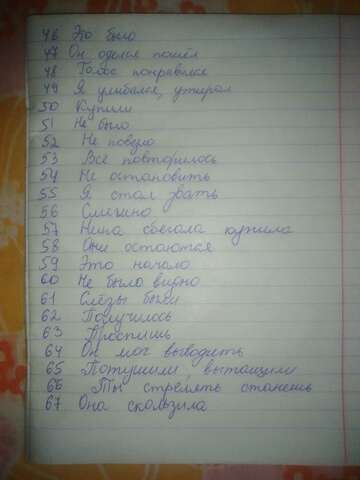 46 Это было
47 Он оделся пошёл
48 Голос понравился
49 Я улыбался, утирал
50 Купили
51 Не было
52 Не повезло
53 Всё повторилось
54 Не остановить
55 Я стал звать
56 Смешно
57 Нина сбегала купила
58 Они остаются
59 Это начало
60 Не было видно
61 Слёзы были
62 Получилось
63 Проспишь
64 Он мог выводить
65 Потушили, вытащили
66 Ты стрелять станешь
67 Она скользила